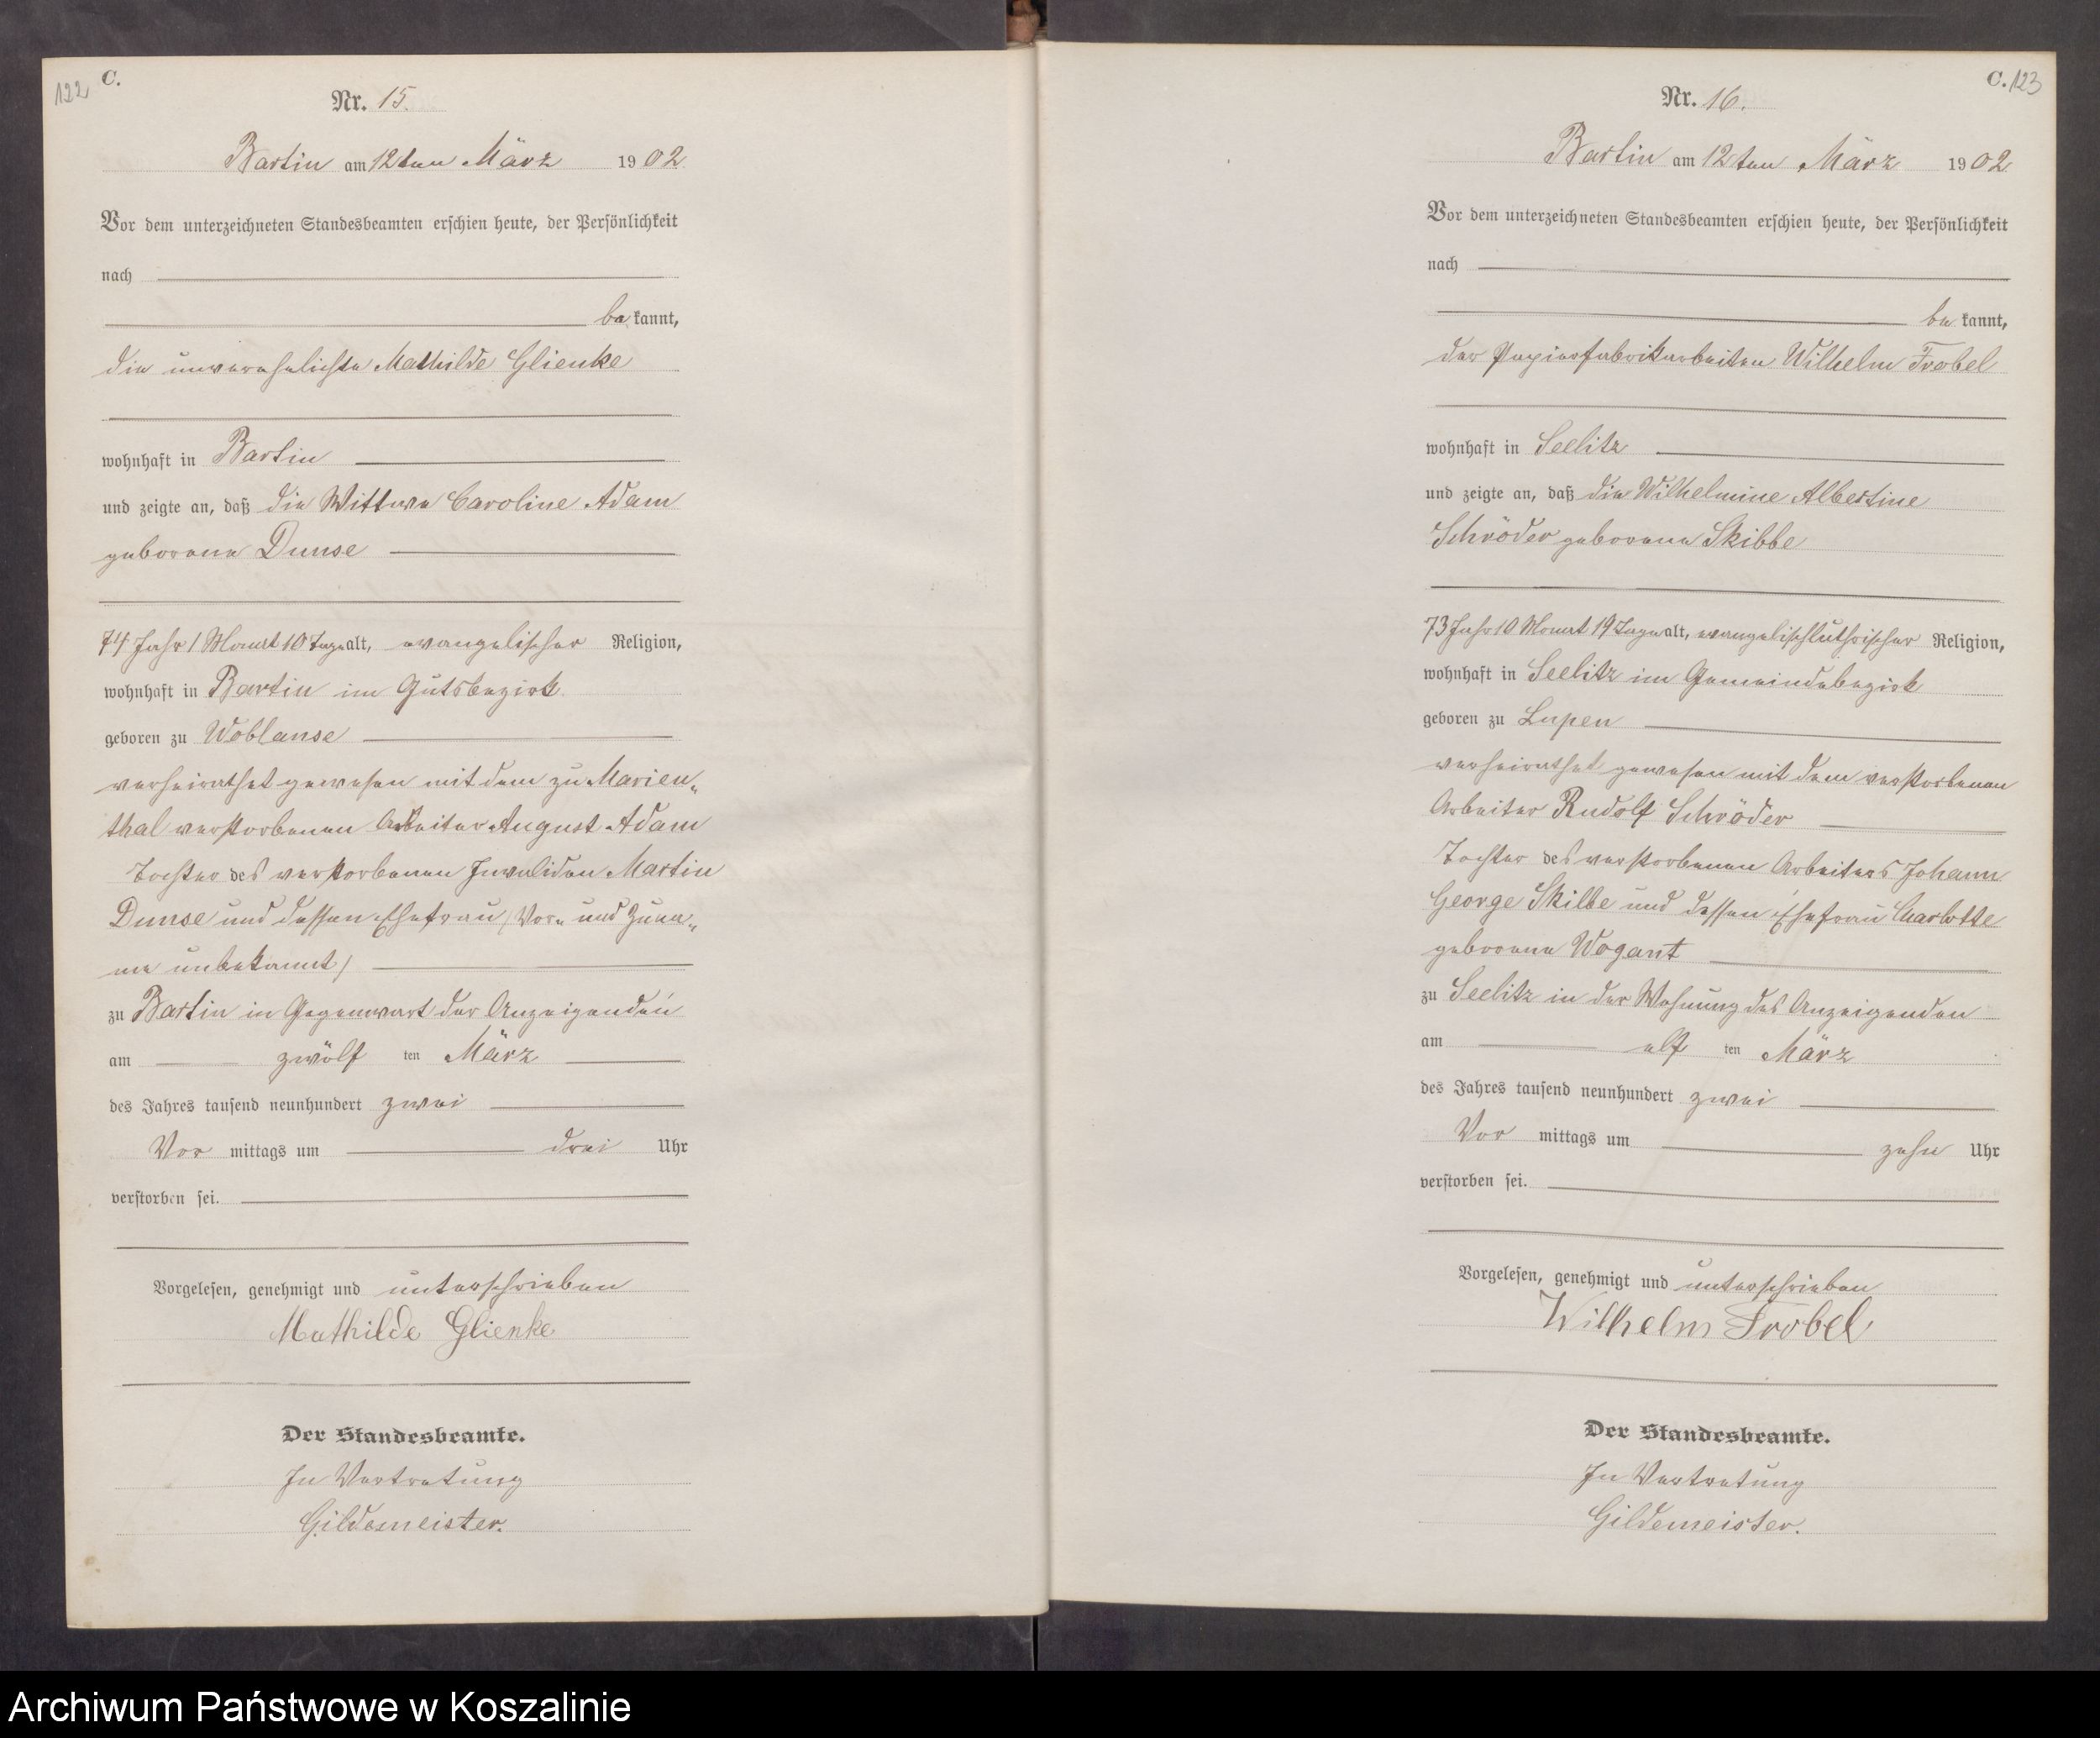 122 C.
Nr. 15.
Bartin am 12ten März 1902
Vor dem unterzeichneten Standesbeamten erschien heute, der Persönlichkeit
nach
bekannt,
die unverehelichte Mathilde Glienke
wohnhaft in Bartin
und zeigte an, daß die Wittwe Caroline Adam
geborene Dunse
74 Jahr 1 Monat 10 Tage alt, evangelischer Religion,
wohnhaft in Bartin im Gutsbezirk
geboren zu Woblanse
verheirathet gewesen mit dem zu Marien„
thal verstorbenen Arbeiter August Adam
Tochter des verstorbenen Invaliden Martin
Dunse und dessen Ehefrau (Vor„ und Zuna„
me unbekannt)
zu Bartin in Gegenwart der Anzeigenden
am zwölf ten März
des Jahres tausend neunhundert zwei
Vor mittags um drei Uhr
verstorben sei.
Vorgelesen, genehmigt und unterschrieben
Mathilde Glienke
Der Standesbeamte.
In Vertretung
Gildemeister.
C. 123
Nr. 16.
Bartin am 12ten März 1902
Vor dem unterzeichneten Standesbeamten erschien heute, der Persönlichkeit
nach
bekannt,
der Papierfabrikarbeiter Wilhelm Frobel
wohnhaft in Seelitz
und zeigte an, daß die Wilhelmine Albertine
Schröder geborene Skibbe
73 Jahr 10 Monat 19 Tage alt, evangelischluthrischer Religion,
wohnhaft in Seelitz im Gemeindebezirk
geboren zu Lupen
verheirathet gewesen mit dem verstorbenen
Arbeiter Rudolf Schröder
Tochter des verstorbenen Arbeiters Johann
George Skibbe und dessen Ehefrau Charlotte
geborene Wogant
zu Seelitz in der Wohnung des Anzeigenden
am elf ten März
des Jahres tausend neunhundert zwei
Vor mittags um zehn Uhr
verstorben sei.
Vorgelesen, genehmigt und unterschrieben
Wilhelm Frobel
Der Standesbeamte.
In Vertretung
Gildemeister.
Archiwum Państwowe w Koszalinie